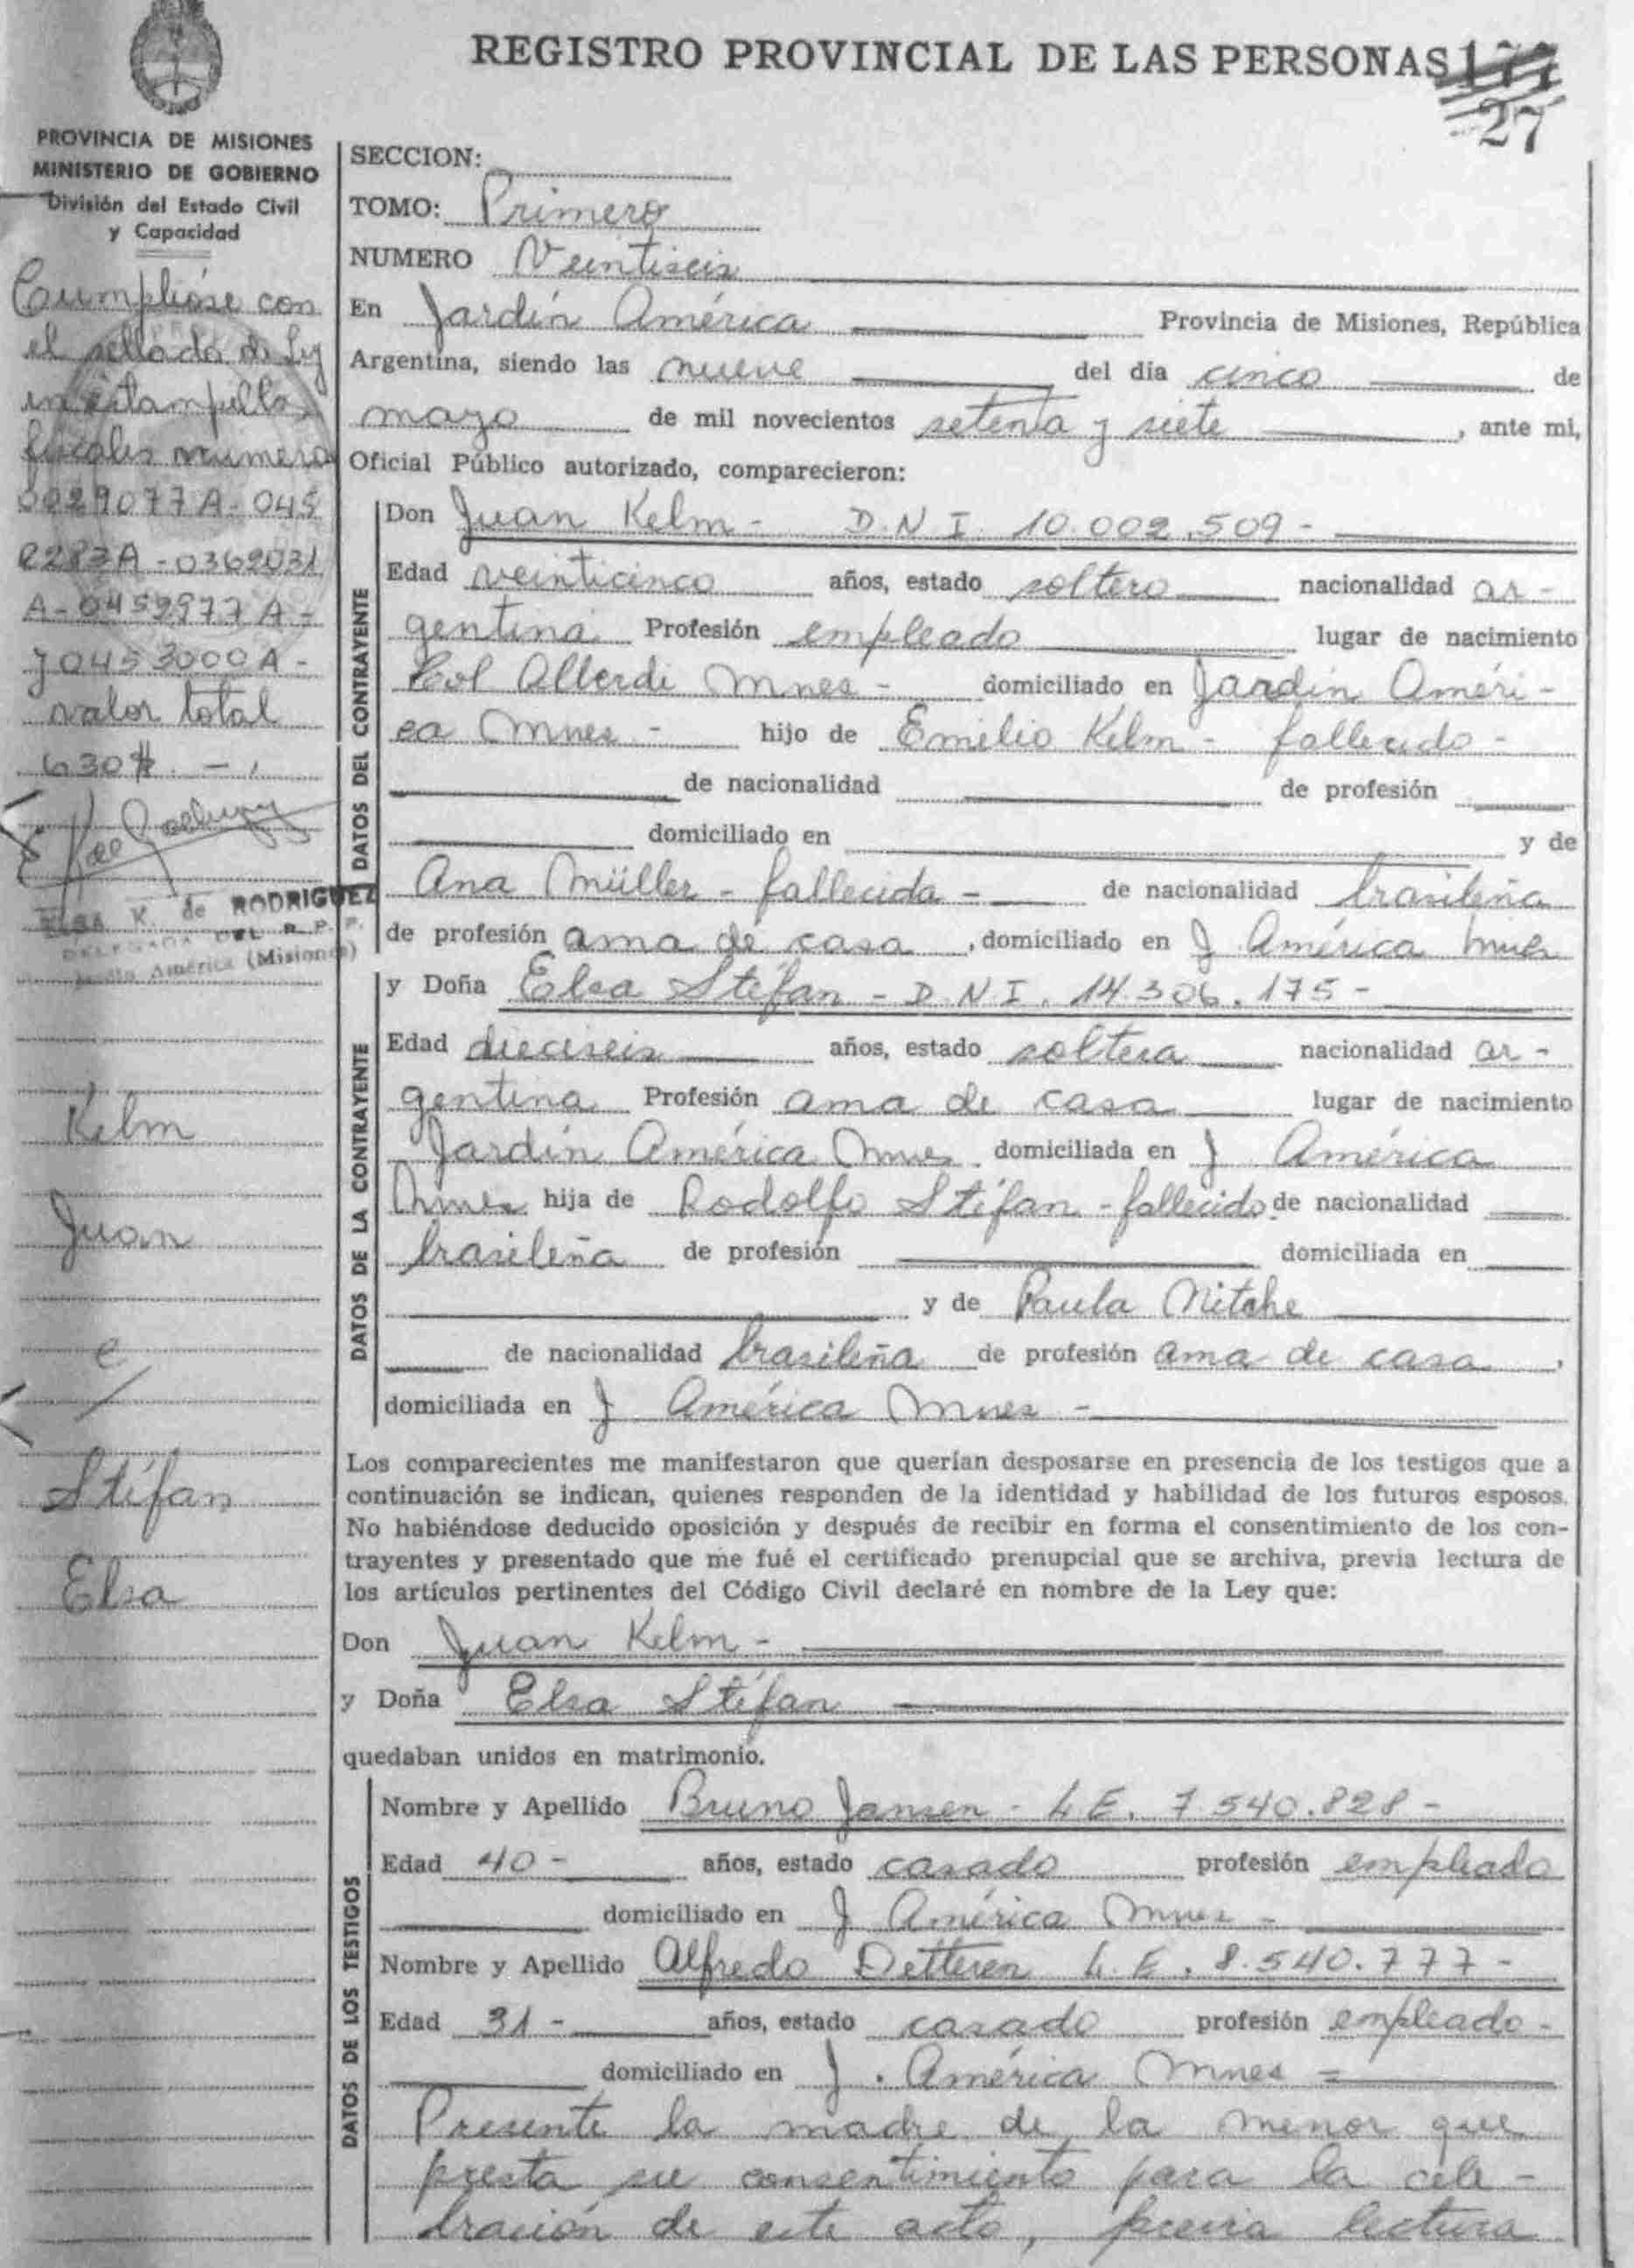 REGISTRO PROVINCIAL DE LAS PERSONAS
27
PROVINCIA DE MISIONES
MINISTERIO DE GOBIERNO
División del Estado Civil
y Capacidad
Cumpliose con
el sellado de Ley
en estampillas
fiscales numero
0029077A-045
2283A-0362031
A-0452977A-
y 0453000A-
valor total
630$.-
ELSA K. de RODRIGUEZ
DELEGADA DEL R.P.P.
Jardín América (Misiones)
Kelm
Juan
e
Stéfan
Elsa
SECCION:
TOMO: Primero
NUMERO Veintiseis
En Jardín América Provincia de Misiones, República
Argentina, siendo las nueve del día cinco de
mayo de mil novecientos setenta y siete , ante mi,
Oficial Público autorizado, comparecieron:
DATOS DEL CONTRAYENTE
Don Juan Kelm - D.N.I. 10.002.509 -
Edad veinticinco años, estado soltero nacionalidad ar-
gentina Profesión empleado lugar de nacimiento
Col Alberdi Mnes - domiciliado en Jardín Améri-
ca Mnes - hijo de Emilio Kelm - fallecido -
de nacionalidad de profesión
domiciliado en y de
Ana Müller - fallecida - de nacionalidad brasileña
de profesión ama de casa , domiciliado en J América Mnes
DATOS DE LA CONTRAYENTE
y Doña Elsa Stéfan - D.N.I. 14.306.175 -
Edad dieciseis años, estado soltera nacionalidad ar-
gentina Profesión ama de casa lugar de nacimiento
Jardín América Mnes domiciliada en J América
Mnes hija de Rodolfo Stéfan - fallecido de nacionalidad
brasileña de profesión domiciliada en
y de Paula Nitche
de nacionalidad brasileña de profesión ama de casa ,
domiciliada en J América Mnes -
Los comparecientes me manifestaron que querían desposarse en presencia de los testigos que a
continuación se indican, quienes responden de la identidad y habilidad de los futuros esposos.
No habiéndose deducido oposición y después de recibir en forma el consentimiento de los con-
trayentes y presentado que me fué el certificado prenupcial que se archiva, previa lectura de
los artículos pertinentes del Código Civil declaré en nombre de la Ley que:
Don Juan Kelm -
y Doña Elsa Stéfan
quedaban unidos en matrimonio.
DATOS DE LOS TESTIGOS
Nombre y Apellido Bruno Jansen - L.E. 7.540.828 -
Edad 40 - años, estado casado profesión empleado
domiciliado en J América Mnes -
Nombre y Apellido Alfredo Detteren L.E. 8.540.777 -
Edad 31 - años, estado casado profesión empleado -
domiciliado en J. América Mnes =
Presente la madre de la menor que
presta su consentimiento para la cele-
bración de este acto, previa lectura